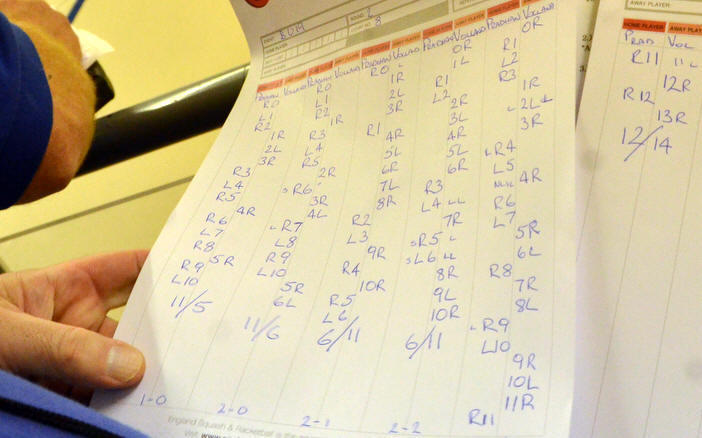 ROUND 2
COURT NO. 8
HOME PLAYER AWAY PLAYER
PRADHAN VOLLAND
R0
L1
R2
1R
2L
3R
R3
L4
R5
4R
R6
L7
R8
5R
R9
L10
11/5
1-0
PRADHAN VOLLAND
R0
L1
R2
1R
R3
L4
R5
2R
R6
3R
4L
R7
L8
R9
L10
5R
6L
11/6
2-0
PRADHAN VOLLAND
R0
1R
2L
3R
R1
4R
5L
6R
7L
8R
R2
L3
9R
R4
10R
R5
L6
6/11
2-1
PRADHAN VOLLAND
0R
1L
R1
L2
2R
3L
4R
5L
6R
R3
L4
7R
R5
L6
8R
9L
10R
6/11
2-2
PRADHAN VOLLAND
0R
R1
L2
R3
1R
2L
3R
R4
L5
4R
R6
L7
5R
6L
R8
7R
8L
R9
L10
9R
10L
11R
R11
England Squash & Racketball is the
HOME PLAYER AWAY PLAYER
PRAD VOL
R11 11L
12R
R12
13R
12/14